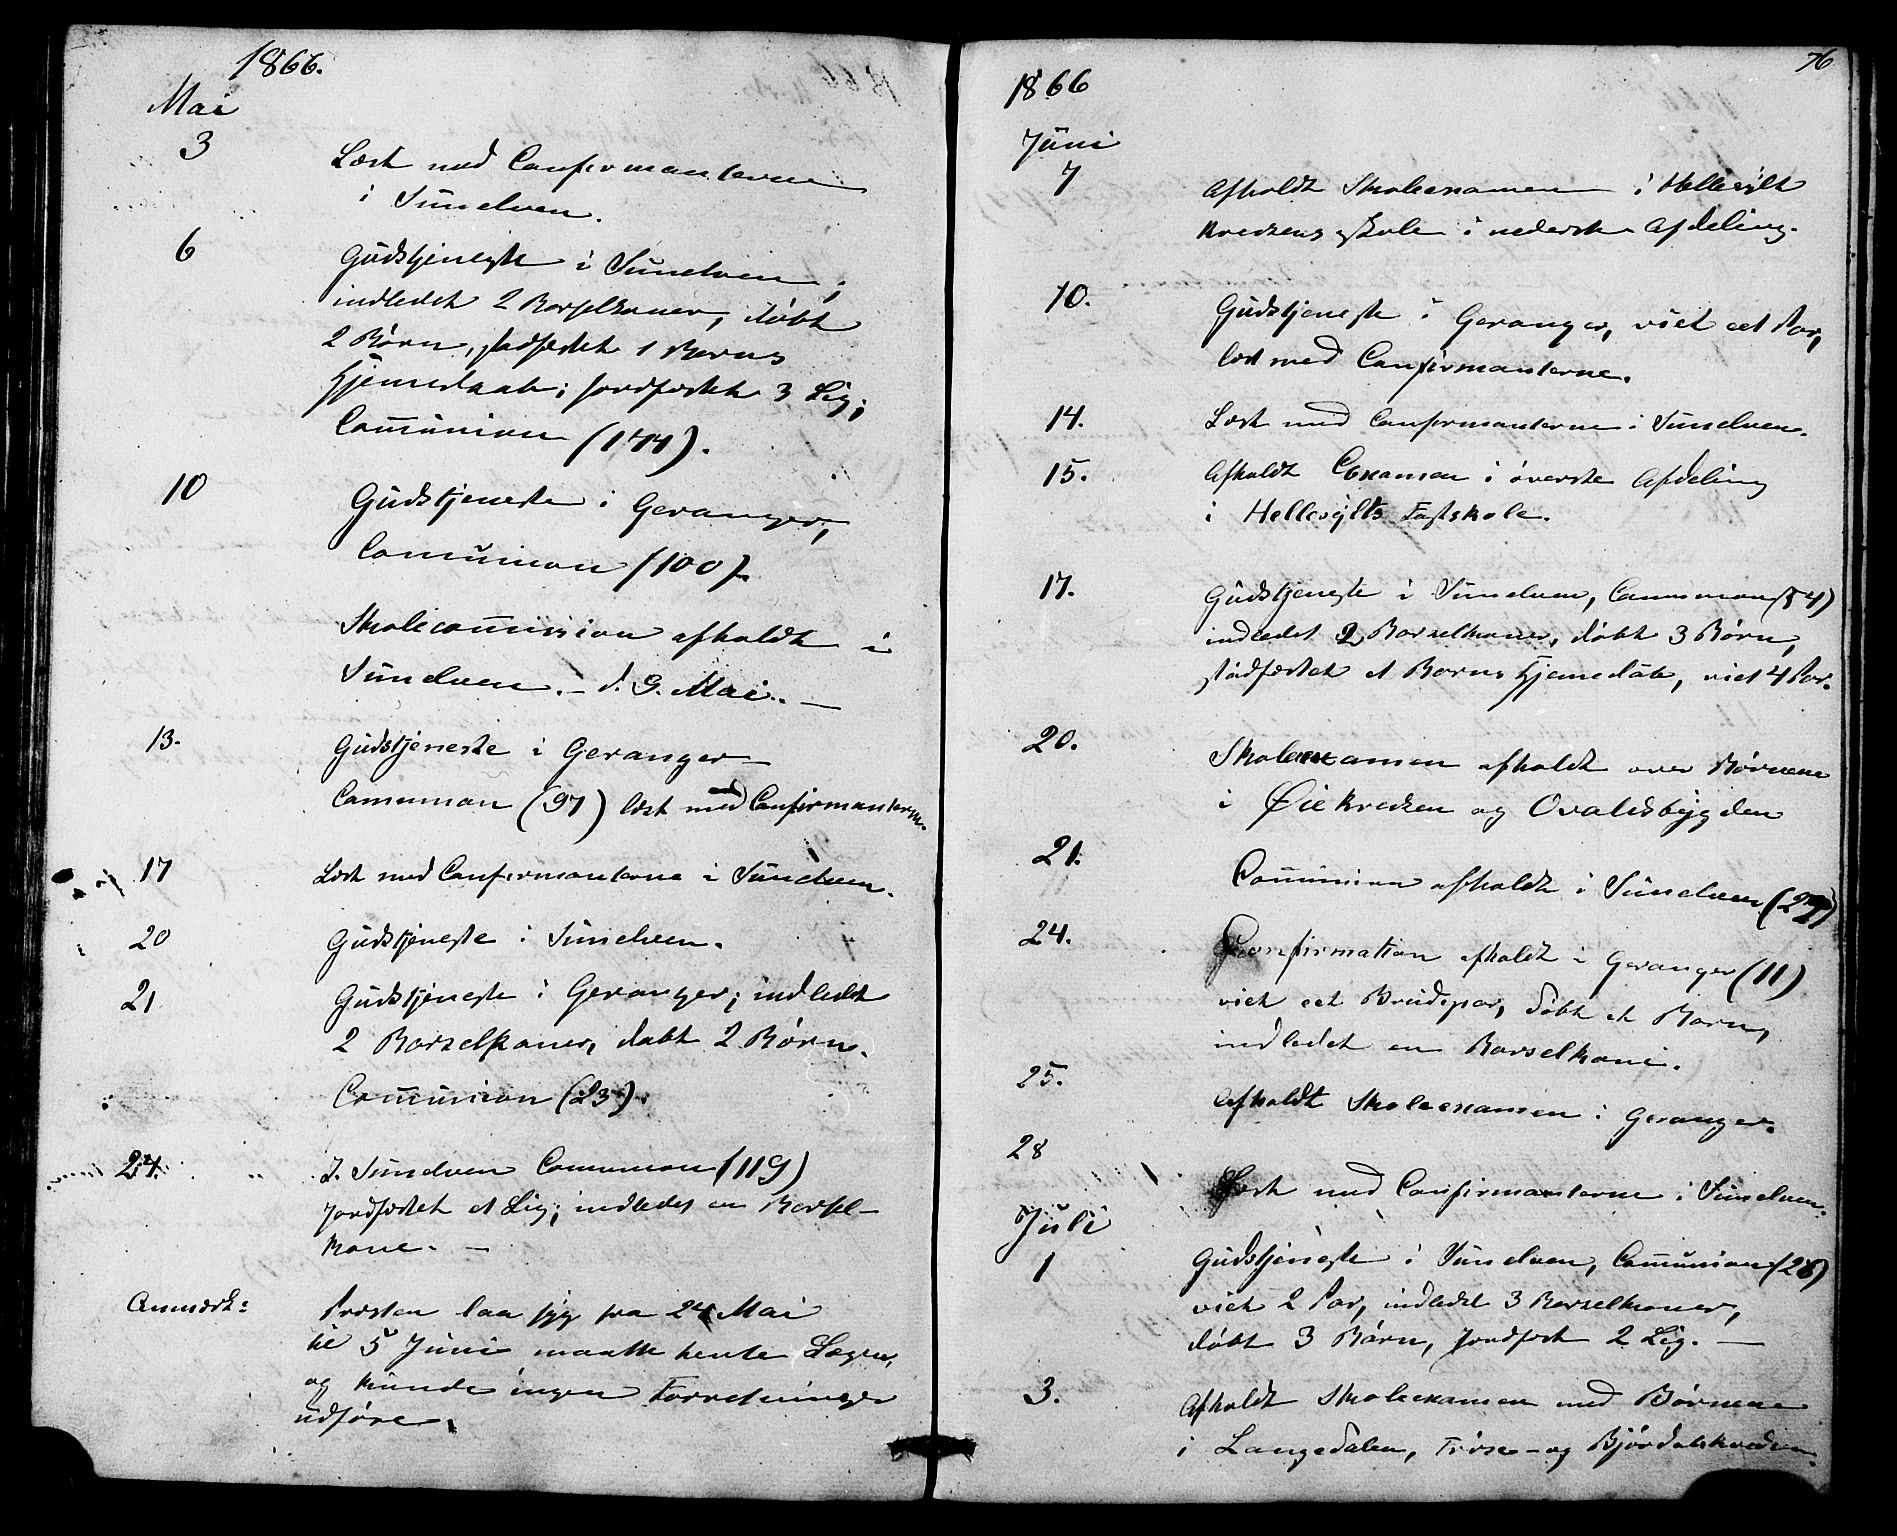 1866.
Mai
3
Læst med Confirmanterne
i Sunelven.
6
Gudstjeneste i Sunelven,
indledet 2 Barselkoner, døbt
2 Børn, stadfæstet 1 Barns
Hjemedaab; Jordfæstet 3 Lig;
Communion (171).
10
Gudstjeneste i Geranger,
Communion (100).
Skolecommission afholdt i
Sunelven. - d. 9. Mai. -
13.
Gudstjeneste i Geranger
Communion (97) læst med Confirmanterne.
17
Læst med Confirmanterne i Sunelven.
20
Gudstjeneste i Sunelven.
21
Gudstjeneste i Geranger; indledet
2 Barselkoner, døbt 2 Børn.
Communion (23).
24.
I Sunelven Communion (119)
Jordfæstet et Lig; indledet en Barsel-
kone. -
Anmærk:
Præsten laa syg fra 24 Mai
til 5 Juni maatte hente Læge,
og kunde ingen Forretninger
udføre.
76
1866
Juni
7
Afholdt Skoleexamen i Hellesylt
Kredsens skole i nederste Afdeling.
10.
Gudstjeneste i Geranger, viet eet Par,
læst med Confirmanterne.
14.
Læst med Confirmanterne i Sunelven.
15.
Afholdt Examen i øverste Afdeling
i Hellesylts Fastskole.
17.
Gudstjeneste i Sunelven, Communion (54)
indledet 2 Barselkoner, døbt 3 Børn,
stadfæstet et Barns Hjemedåb, viet 4 Par.
20.
Skoleexamen afholdt over Børnene
i Øiekredsen og Ovaldsbygden
21.
Communion afholdt i Sunelven (27)
24.
Confirmation afholdt i Geranger (11)
viet eet Brudepar, døbt et Barn,
indledet en Barselkone.
25.
Afholdt Skoleexamen i Geranger.
28
Læst med Confirmanterne i Sunelven.
Juli
1
Gudstjeneste i Sunelven, Communion (28)
viet 2 Par, indledet 3 Barselkoner,
døbt 3 Børn, Jordfæst 2 Lig. -
3.
Afholdt Skoleexamen med Børnene
i Langedalen, Tryse- og Bjørdalskredsen.